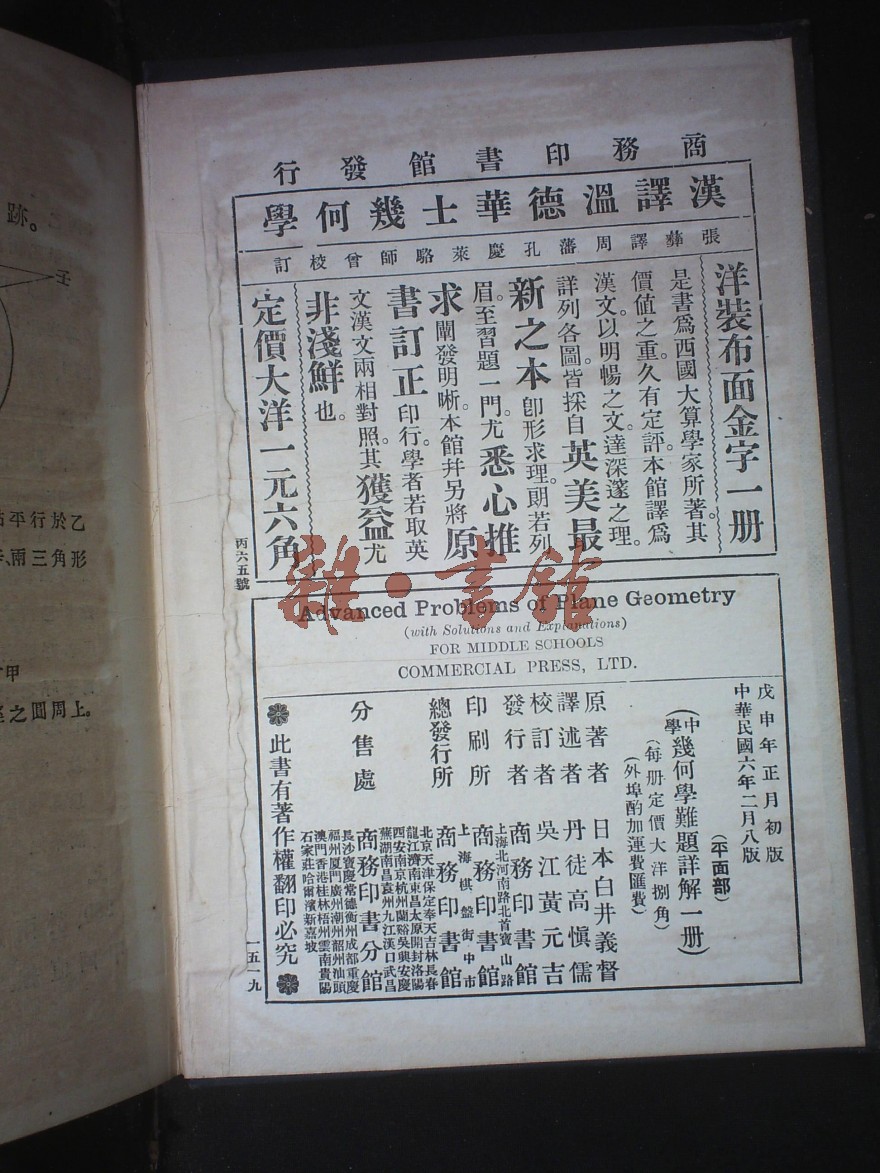 商務印書館發行
漢譯溫德華士幾何學
張彝譯 周藩 孔慶萊 駱師曾校訂
洋裝布面金字一册
是書爲西國大算學家所著。其
價值之重。久有定評。本館譯爲
漢文。以明暢之文。達深邃之理。
詳列各圖。皆採自英美最
新之本卽形求理。朗若列
眉。至習題一門。尤悉心推
求闡發明晰。本館幷另將原
書訂正印行。學者若取英
文漢文兩相對照。其獲益尤
非淺鮮也。
定價大洋一元六角
丙六五號
雜·書館
Advanced Problems of Plane Geometry
(with Solutions and Explanations)
FOR MIDDLE SCHOOLS
COMMERCIAL PRESS, LTD.
戊申年正月初版
中華民國六年二月八版
(平面部)
(中學幾何學難題詳解一册)
(每册定價大洋捌角)
(外埠酌加運費匯費)
原著者 日本白井義督
譯述者 丹徒高愼儒
校訂者 吳江黃元吉
發行者 商務印書館
上海北河南路北首寶山路
印刷所 商務印書館
上海棋盤街中市
總發行所 商務印書館
北京天津保定奉天吉林長春
龍江濟南東昌太原開封洛陽
西安南京杭州蘭谿吳興安慶
蕪湖南昌袁州九江漢口武昌
分售處 商務印書分館
長沙寶慶常德衡州成都重慶
福州厦門廣州潮州韶州汕頭
澳門香港桂林梧州雲南貴陽
石家莊哈爾濱新嘉坡
此書有著作權翻印必究
一五一九
跡。
壬
乙於行平
兩三角形
甲
之圓周上。